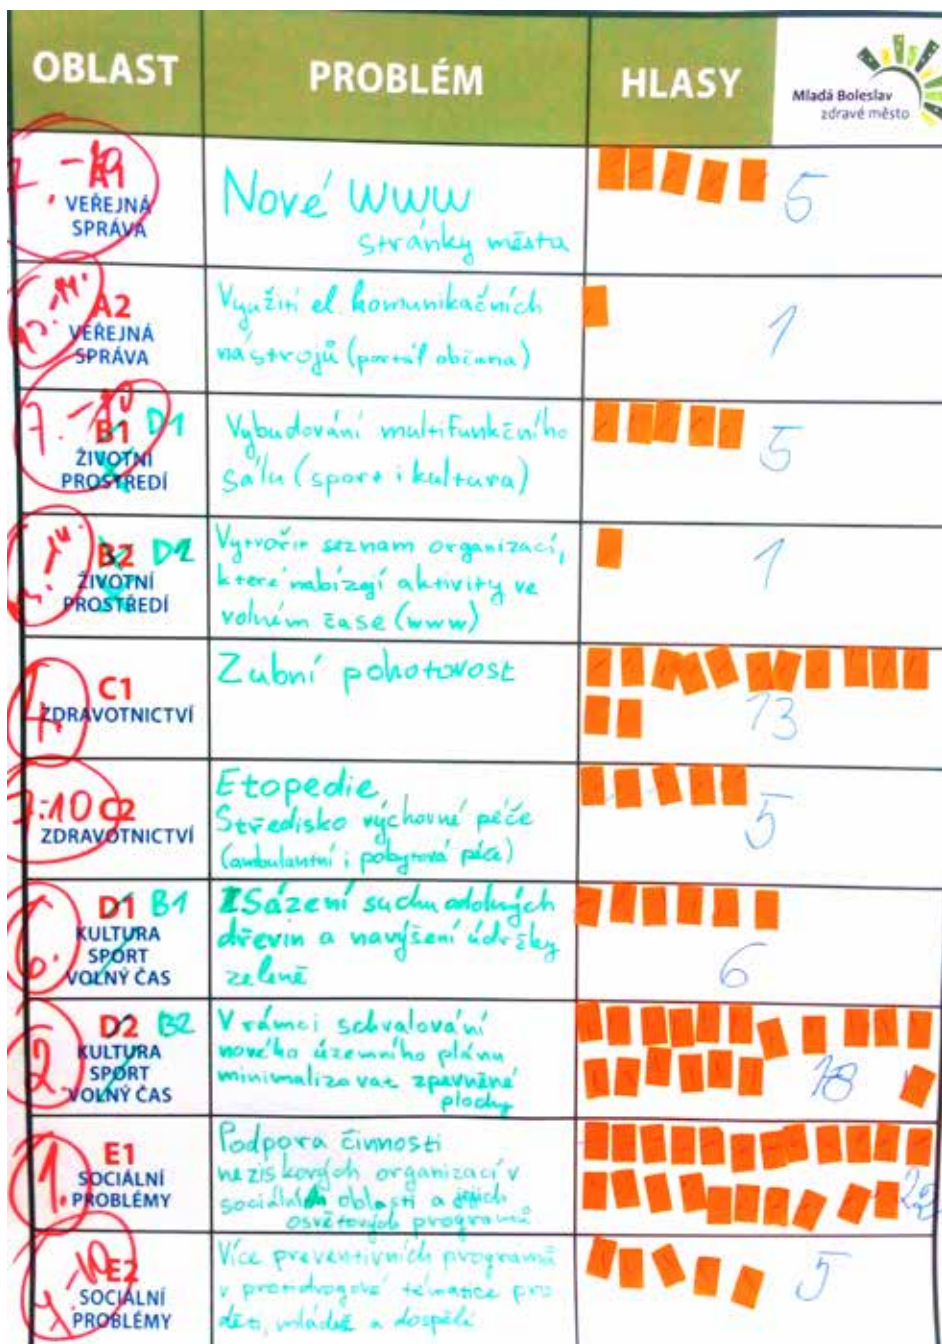 OBLAST PROBLÉM HLASY
Mladá Boleslav
zdravé město
7. - 10
A1
VEŘEJNÁ
SPRÁVA
Nové WWW
stránky města
5
A2
VEŘEJNÁ
SPRÁVA
Využití el. komunikačních
nástrojů (portál občana)
1
7. - 10
B1 D1
ŽIVOTNÍ
PROSTŘEDÍ
Vybudování multifunkčního
sálu (sport i kultura)
5
B2 D2
ŽIVOTNÍ
PROSTŘEDÍ
Vytvořit seznam organizací,
které nabízejí aktivity ve
volném čase (www)
1
C1
ZDRAVOTNICTVÍ
Zubní pohotovost
13
7.-10
C2
ZDRAVOTNICTVÍ
Etopedie
Středisko výchovné péče
(ambulantní i pobytová péče)
5
6.
D1 B1
KULTURA
SPORT
VOLNÝ ČAS
Sázení suchu odolných
dřevin a navýšení údržby
zeleně
6
2.
D2 B2
KULTURA
SPORT
VOLNÝ ČAS
V rámci schvalování
nového územního plánu
minimalizovat zpevněné
plochy
18
1.
E1
SOCIÁLNÍ
PROBLÉMY
Podpora činnosti
neziskových organizací v
sociální oblasti a jejich
osvětových programů
E2
SOCIÁLNÍ
PROBLÉMY
Více preventivních programů
v protidrogové tématice pro
děti, mládež a dospělé
5